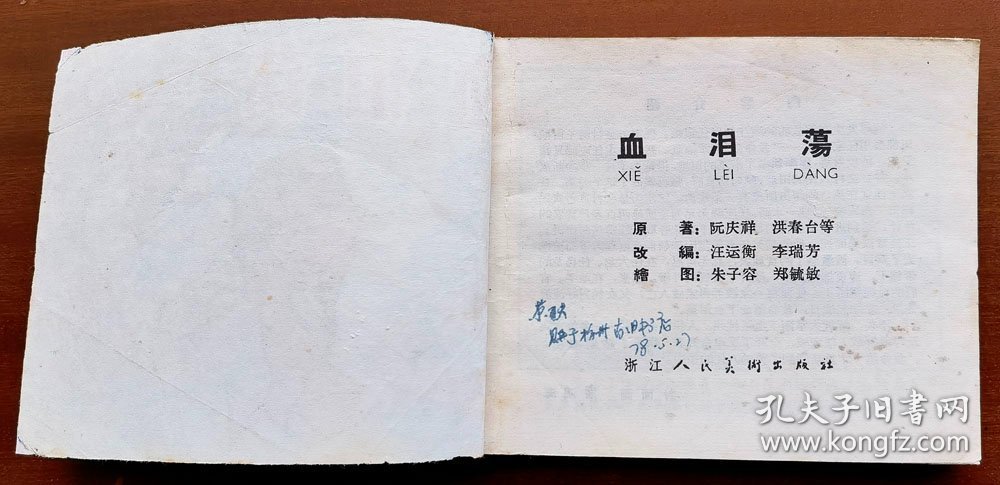 血泪蕩
XIĚ LÈI DÀNG
原著：阮庆祥 洪春台等
改編：汪运衡 李瑞芳
繪图：朱子容 郑毓敏
购于杭州古旧书店
78.5.27
浙江人民美術出版社
孔夫子旧書网
www.kongfz.com